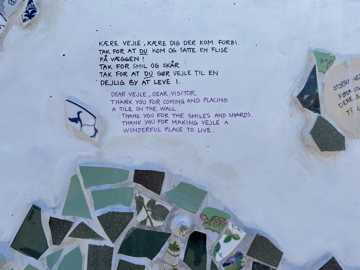 KÆRE VEJLE, KÆRE DIG DER KOM FORBI.
TAK FOR AT DU KOM OG SATTE EN FLISE
PÅ VÆGGEN!
TAK FOR SMIL OG SKÅR
TAK FOR AT DU GØR VEJLE TIL EN
DEJLIG BY AT LEVE I.
DEAR VEJLE, DEAR VISITOR,
THANK YOU FOR COMING AND PLACING
A TILE ON THE WALL.
THANK YOU FOR THE SMILES AND SHARDS.
THANK YOU FOR MAKING VEJLE A
WONDERFUL PLACE TO LIVE.